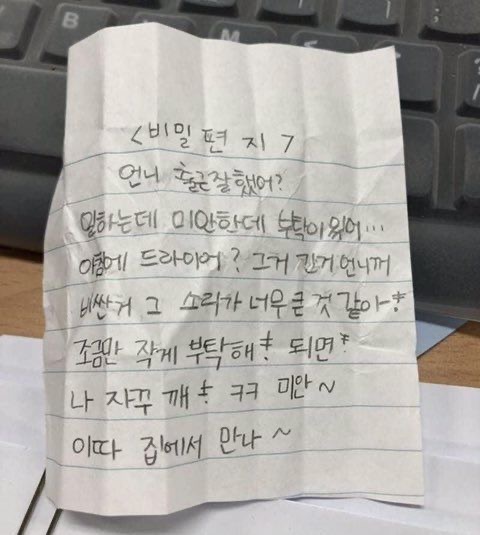 <비밀 편 지>
언니 출근잘했어?
일하는데 미안한데 부탁이 있어...
아침에 드라이어? 그거 긴거 언니꺼
비싼거 그 소리가 너무 큰 것 같아ㅎ
조금만 작게 부탁해ㅎ 되면ㅎ
나 자꾸 깨ㅎ ㅋㅋ 미안~
이따 집에서 만나~